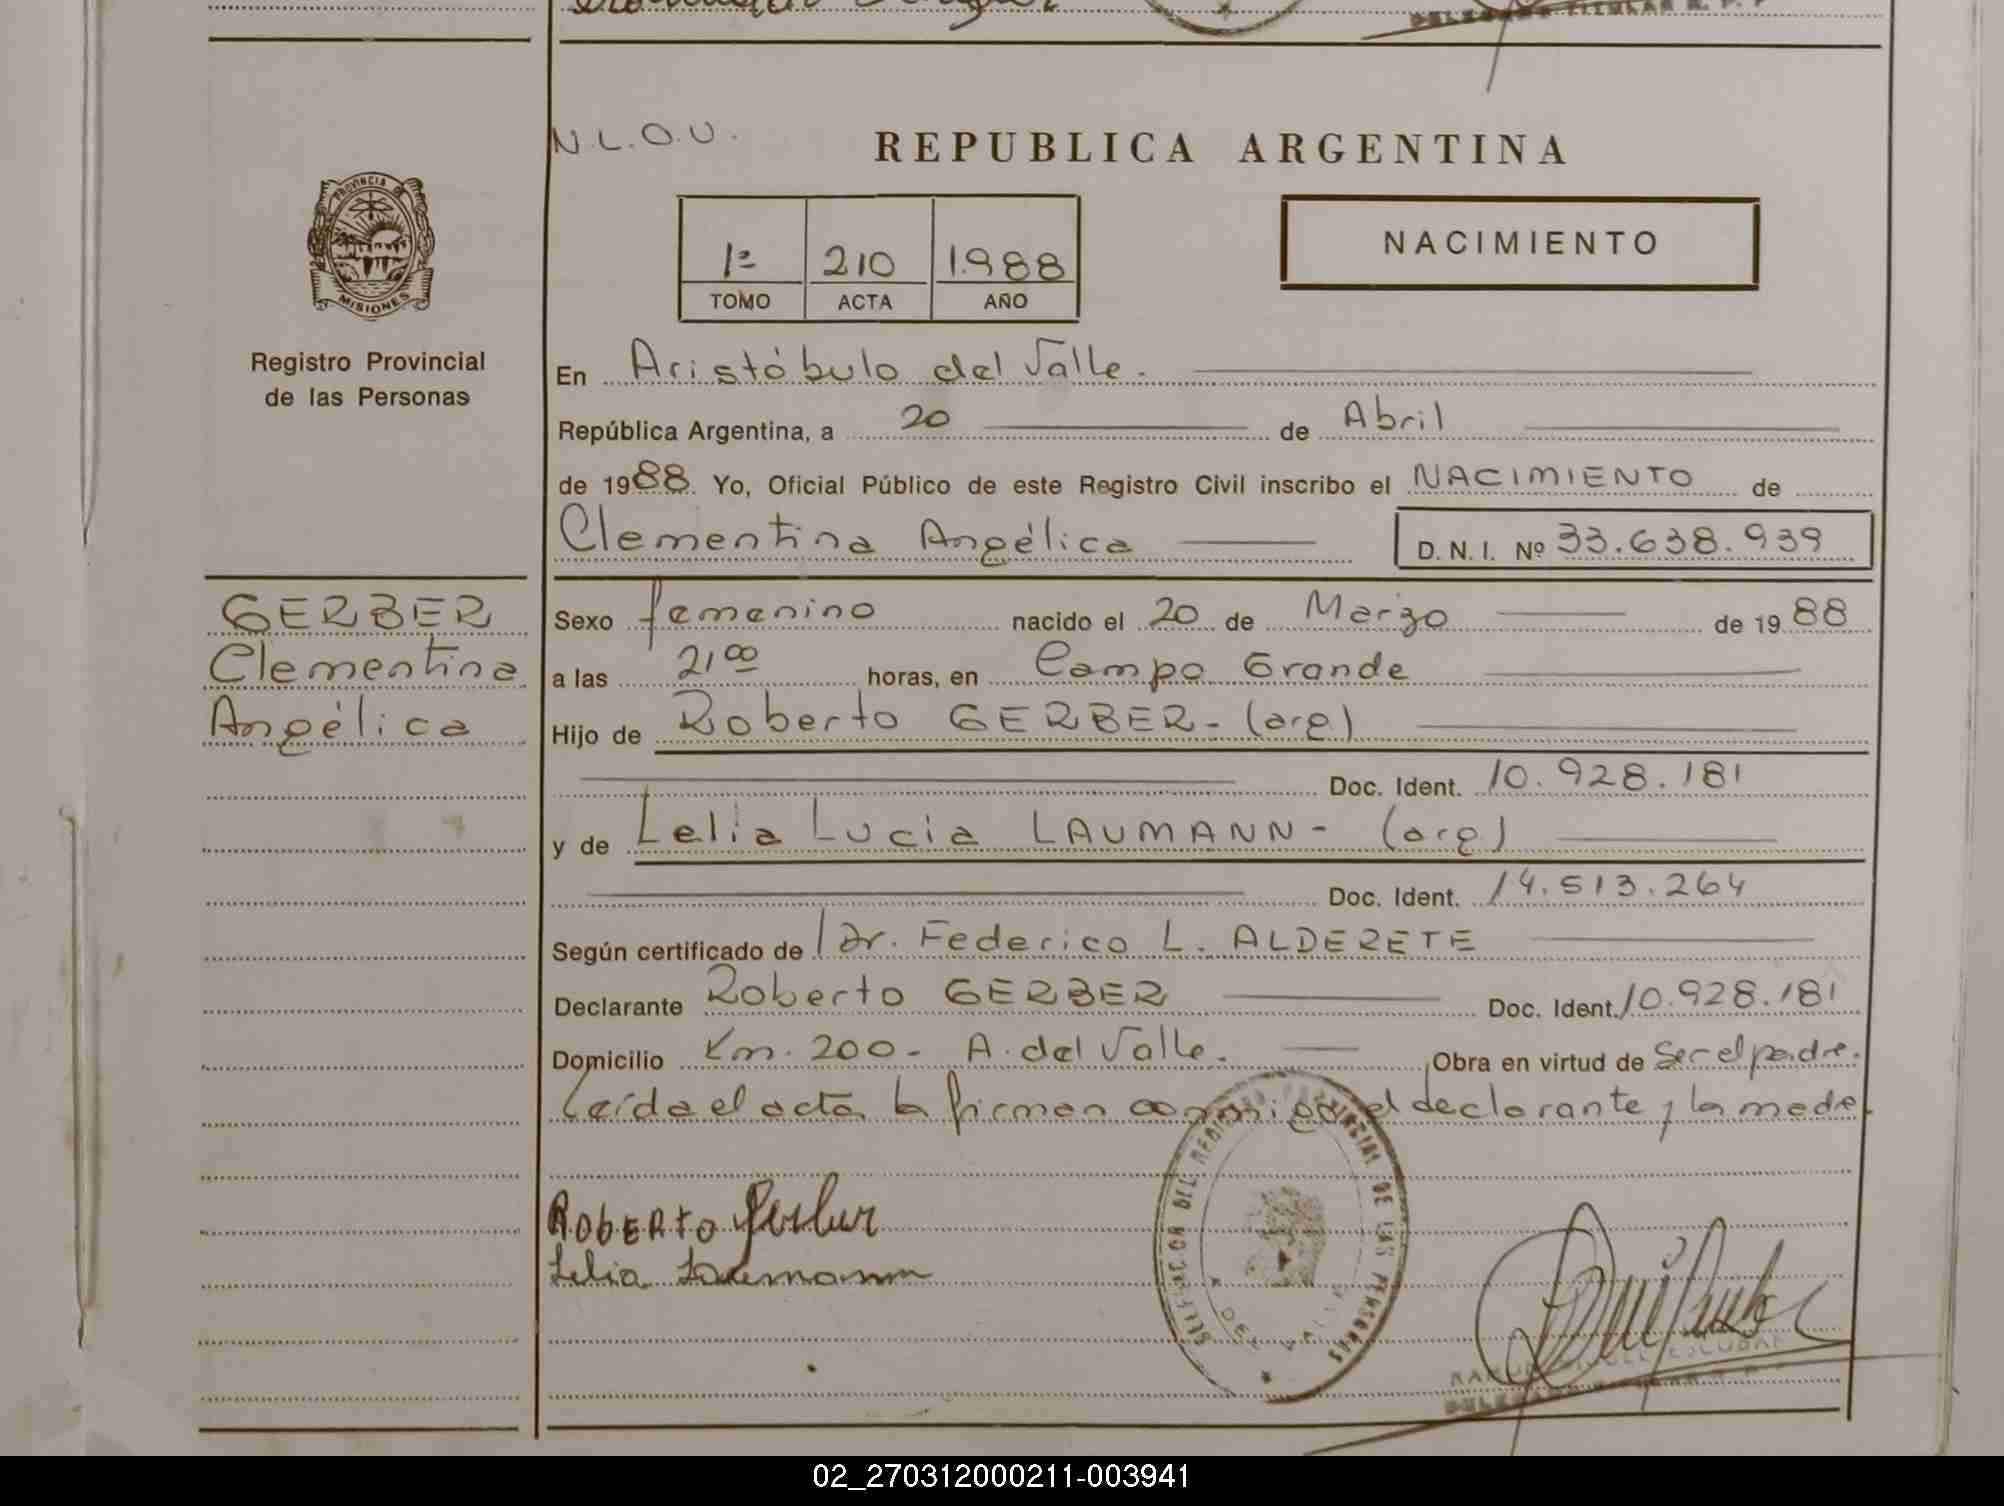 N.L.O.U.
REPUBLICA ARGENTINA
PROVINCIA DE
MISIONES
Registro Provincial
de las Personas
1º 210 1.988
TOMO ACTA AÑO
NACIMIENTO
En Aristóbulo del Valle.
República Argentina, a 20 de Abril
de 1988. Yo, Oficial Público de este Registro Civil inscribo el NACIMIENTO de
Clementina Angélica D.N.I. Nº 33.638.939
GERBER
Clementina
Angélica
Sexo femenino nacido el 20 de Marzo de 1988
a las 21 00 horas, en Campo Grande
Hijo de Roberto GERBER - (arg)
Doc. Ident. 10.928.181
y de Lelia Lucia LAUMANN - (arg)
Doc. Ident. 14.513.264
Según certificado de Dr. Federico L. ALDERETE
Declarante Roberto GERBER Doc. Ident. 10.928.181
Domicilio Km. 200 - A. del Valle. Obra en virtud de Ser el padre.
Leída el acta la firman conmigo el declarante y la madre.
ROBERTO Gerber
Lelia Laumann
DE LAS PERSONAS
02_270312000211-003941